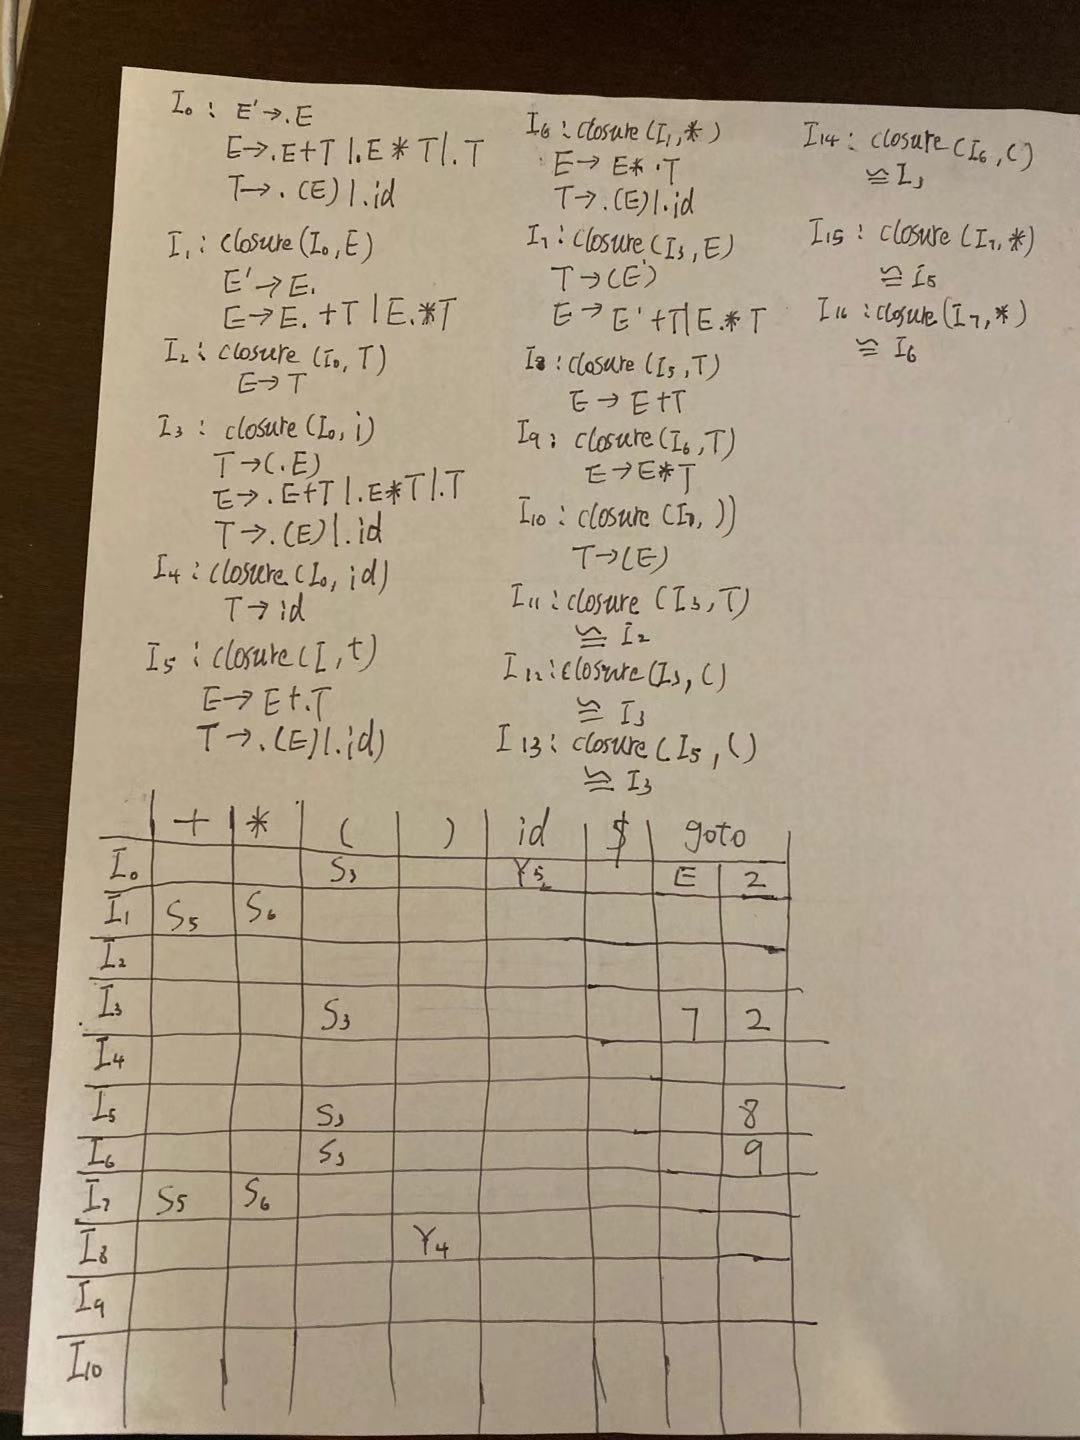 I₀ : E' → .E
E → .E+T | .E * T | .T
T → . (E) | .id
I₁ : closure (I₀, E)
E' → E.
E → E. +T | E.*T
I₂ : closure (I₀, T)
E → T
I₃ : closure (I₀, i)
T → (.E)
E → .E+T | .E*T | .T
T → .(E) | .id
I₄ : closure (I₀, id)
T → id
I₅ : closure (I, t)
E → E+.T
T → .(E) | .id)
I₆ : closure (I₁, *)
E → E* .T
T → .(E) | .id
I₇ : closure (I₃, E)
T → (E')
E → E'+T | E.* T
I₈ : closure (I₅, T)
E → E+T
I₉ : closure (I₆, T)
E → E*T
I₁₀ : closure (I₇, ))
T → (E)
I₁₁ : closure (I₃, T)
≌ I₂
I₁₂ : closure (I₃, ()
≌ I₃
I₁₃ : closure (I₅, ()
≌ I₃
I₁₄ : closure (I₆, ()
≌ I₃
I₁₅ : closure (I₇, *)
≌ I₅
I₁₆ : closure (I₇, *)
≌ I₆
+ * ( ) id $ goto
I₀ S₃ Y₅ E 2
I₁ S₅ S₆
I₂
I₃ S₃ 7 2
I₄
I₅ S₃ 8
I₆ S₃ 9
I₇ S₅ S₆
I₈ Y₄
I₉
I₁₀